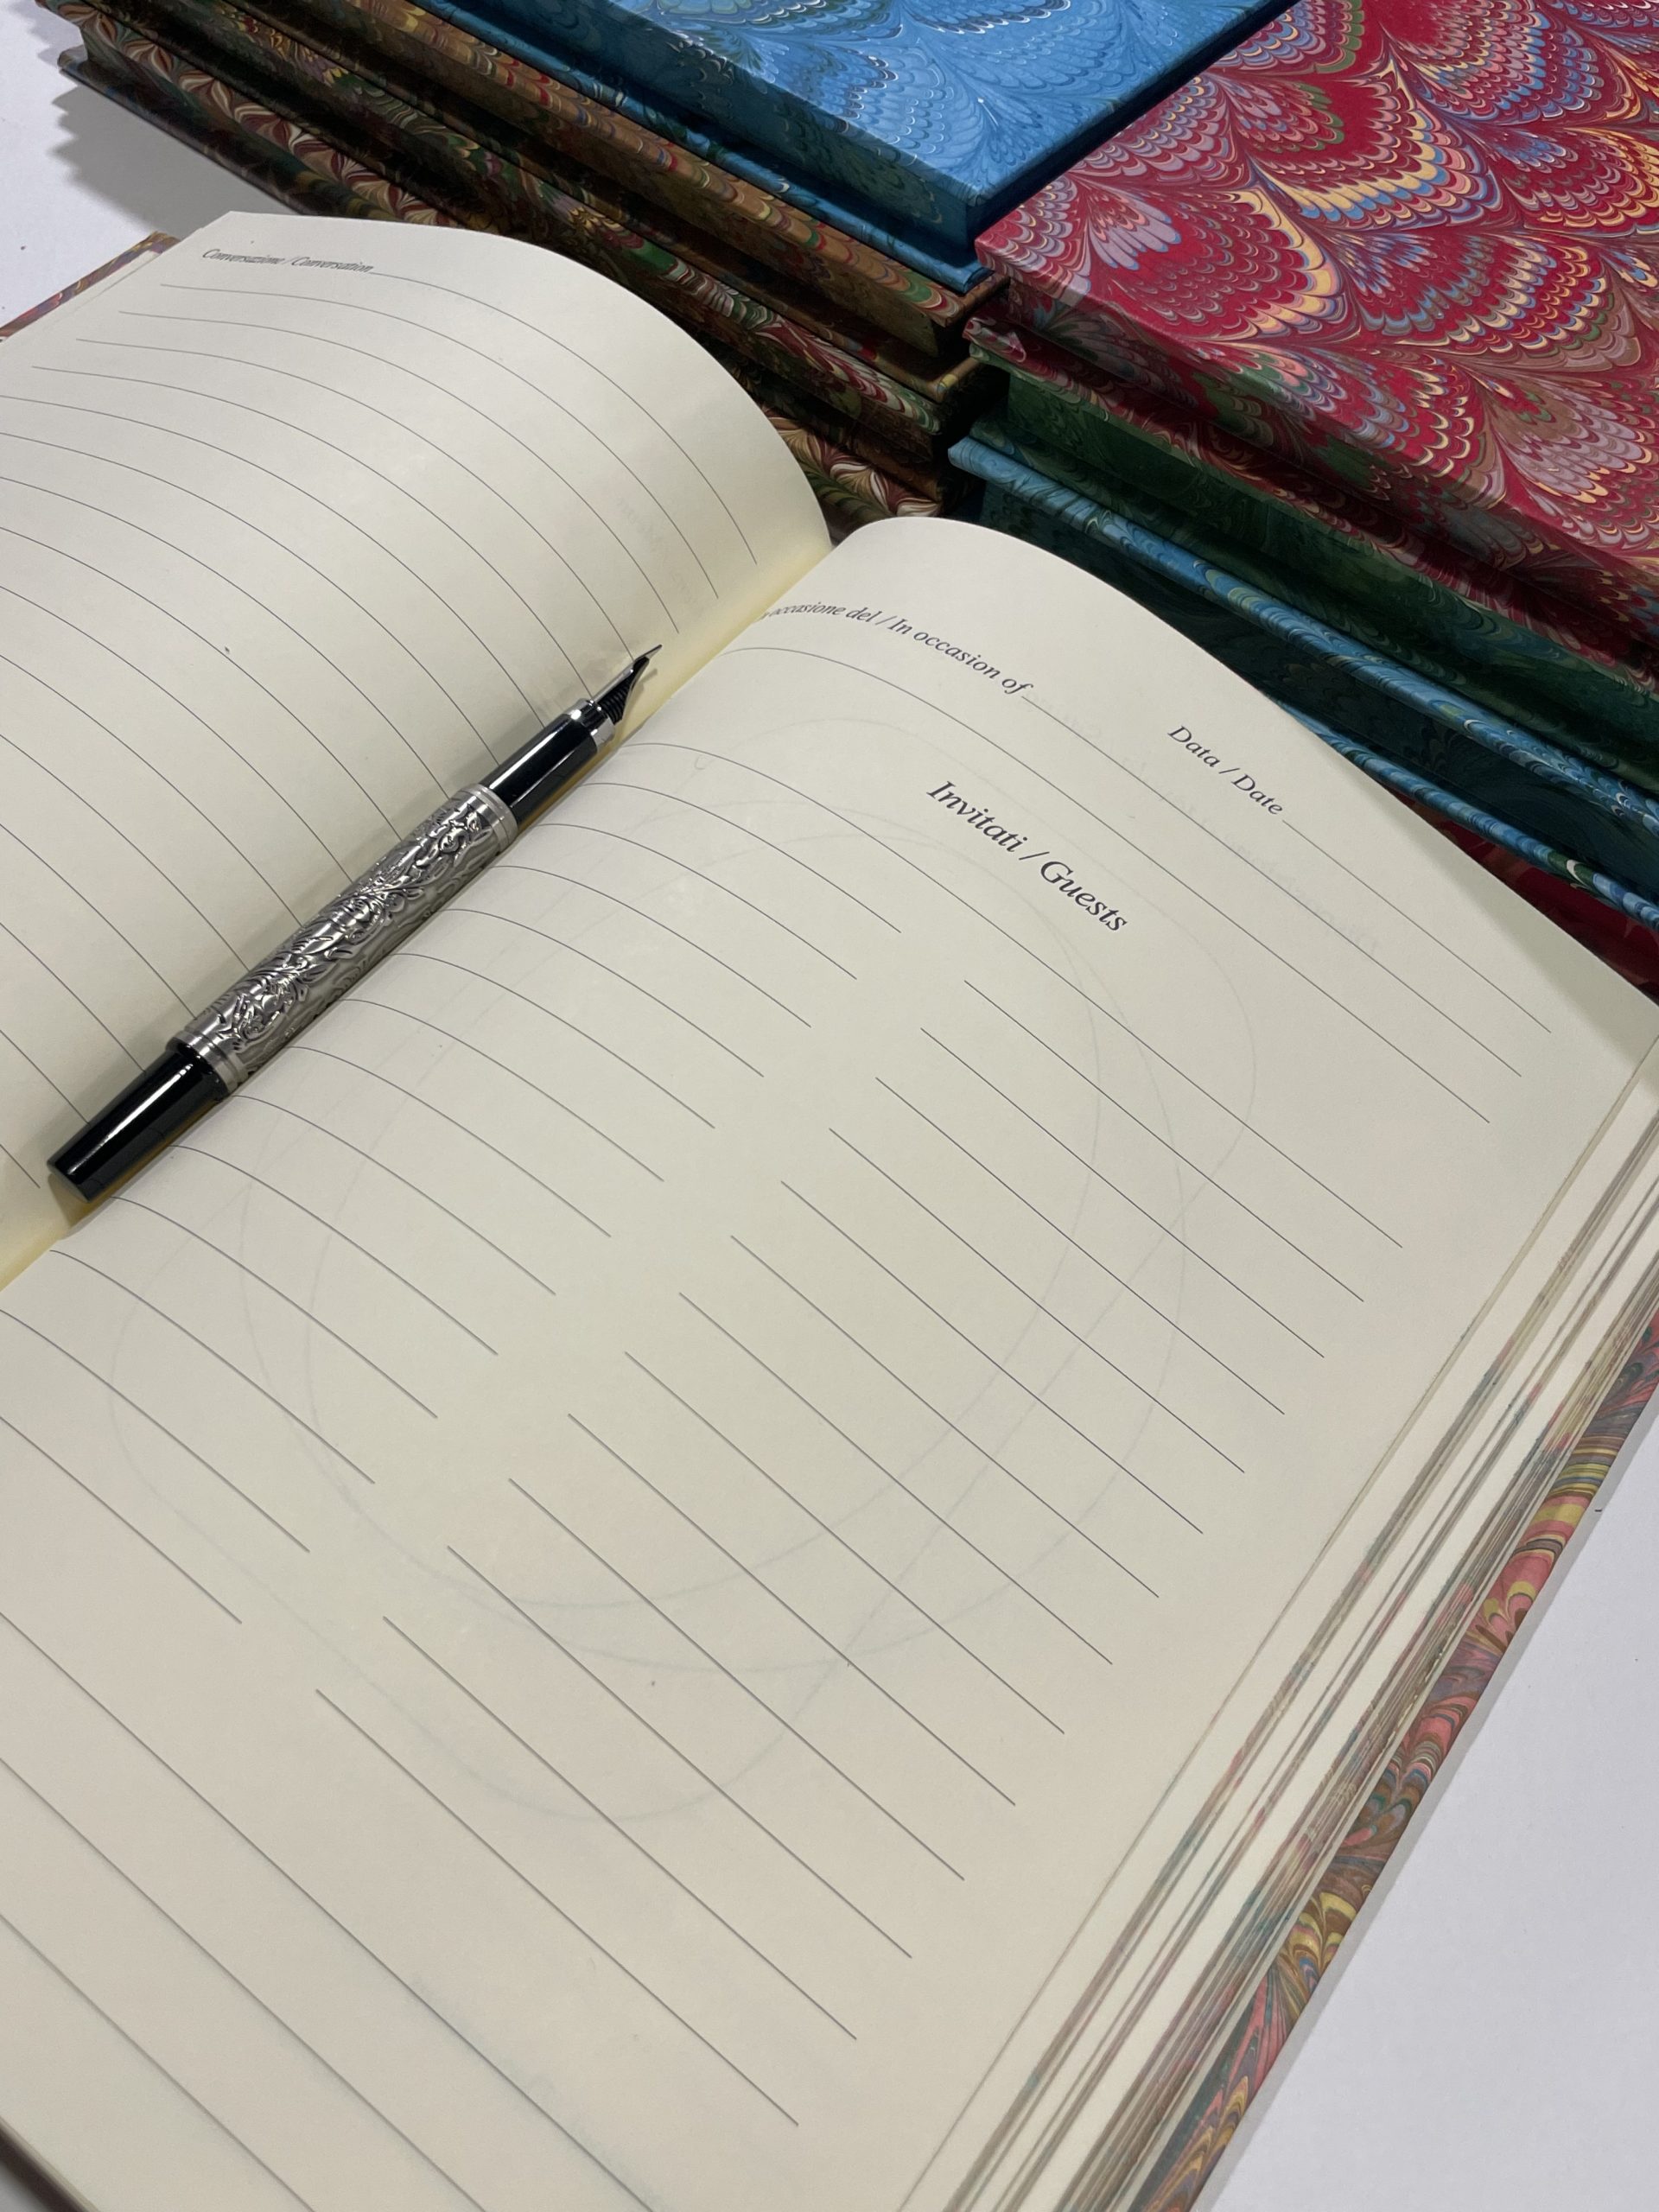 Conversazione / Conversation
occasione del / In occasion of
Data / Date
Invitati / Guests